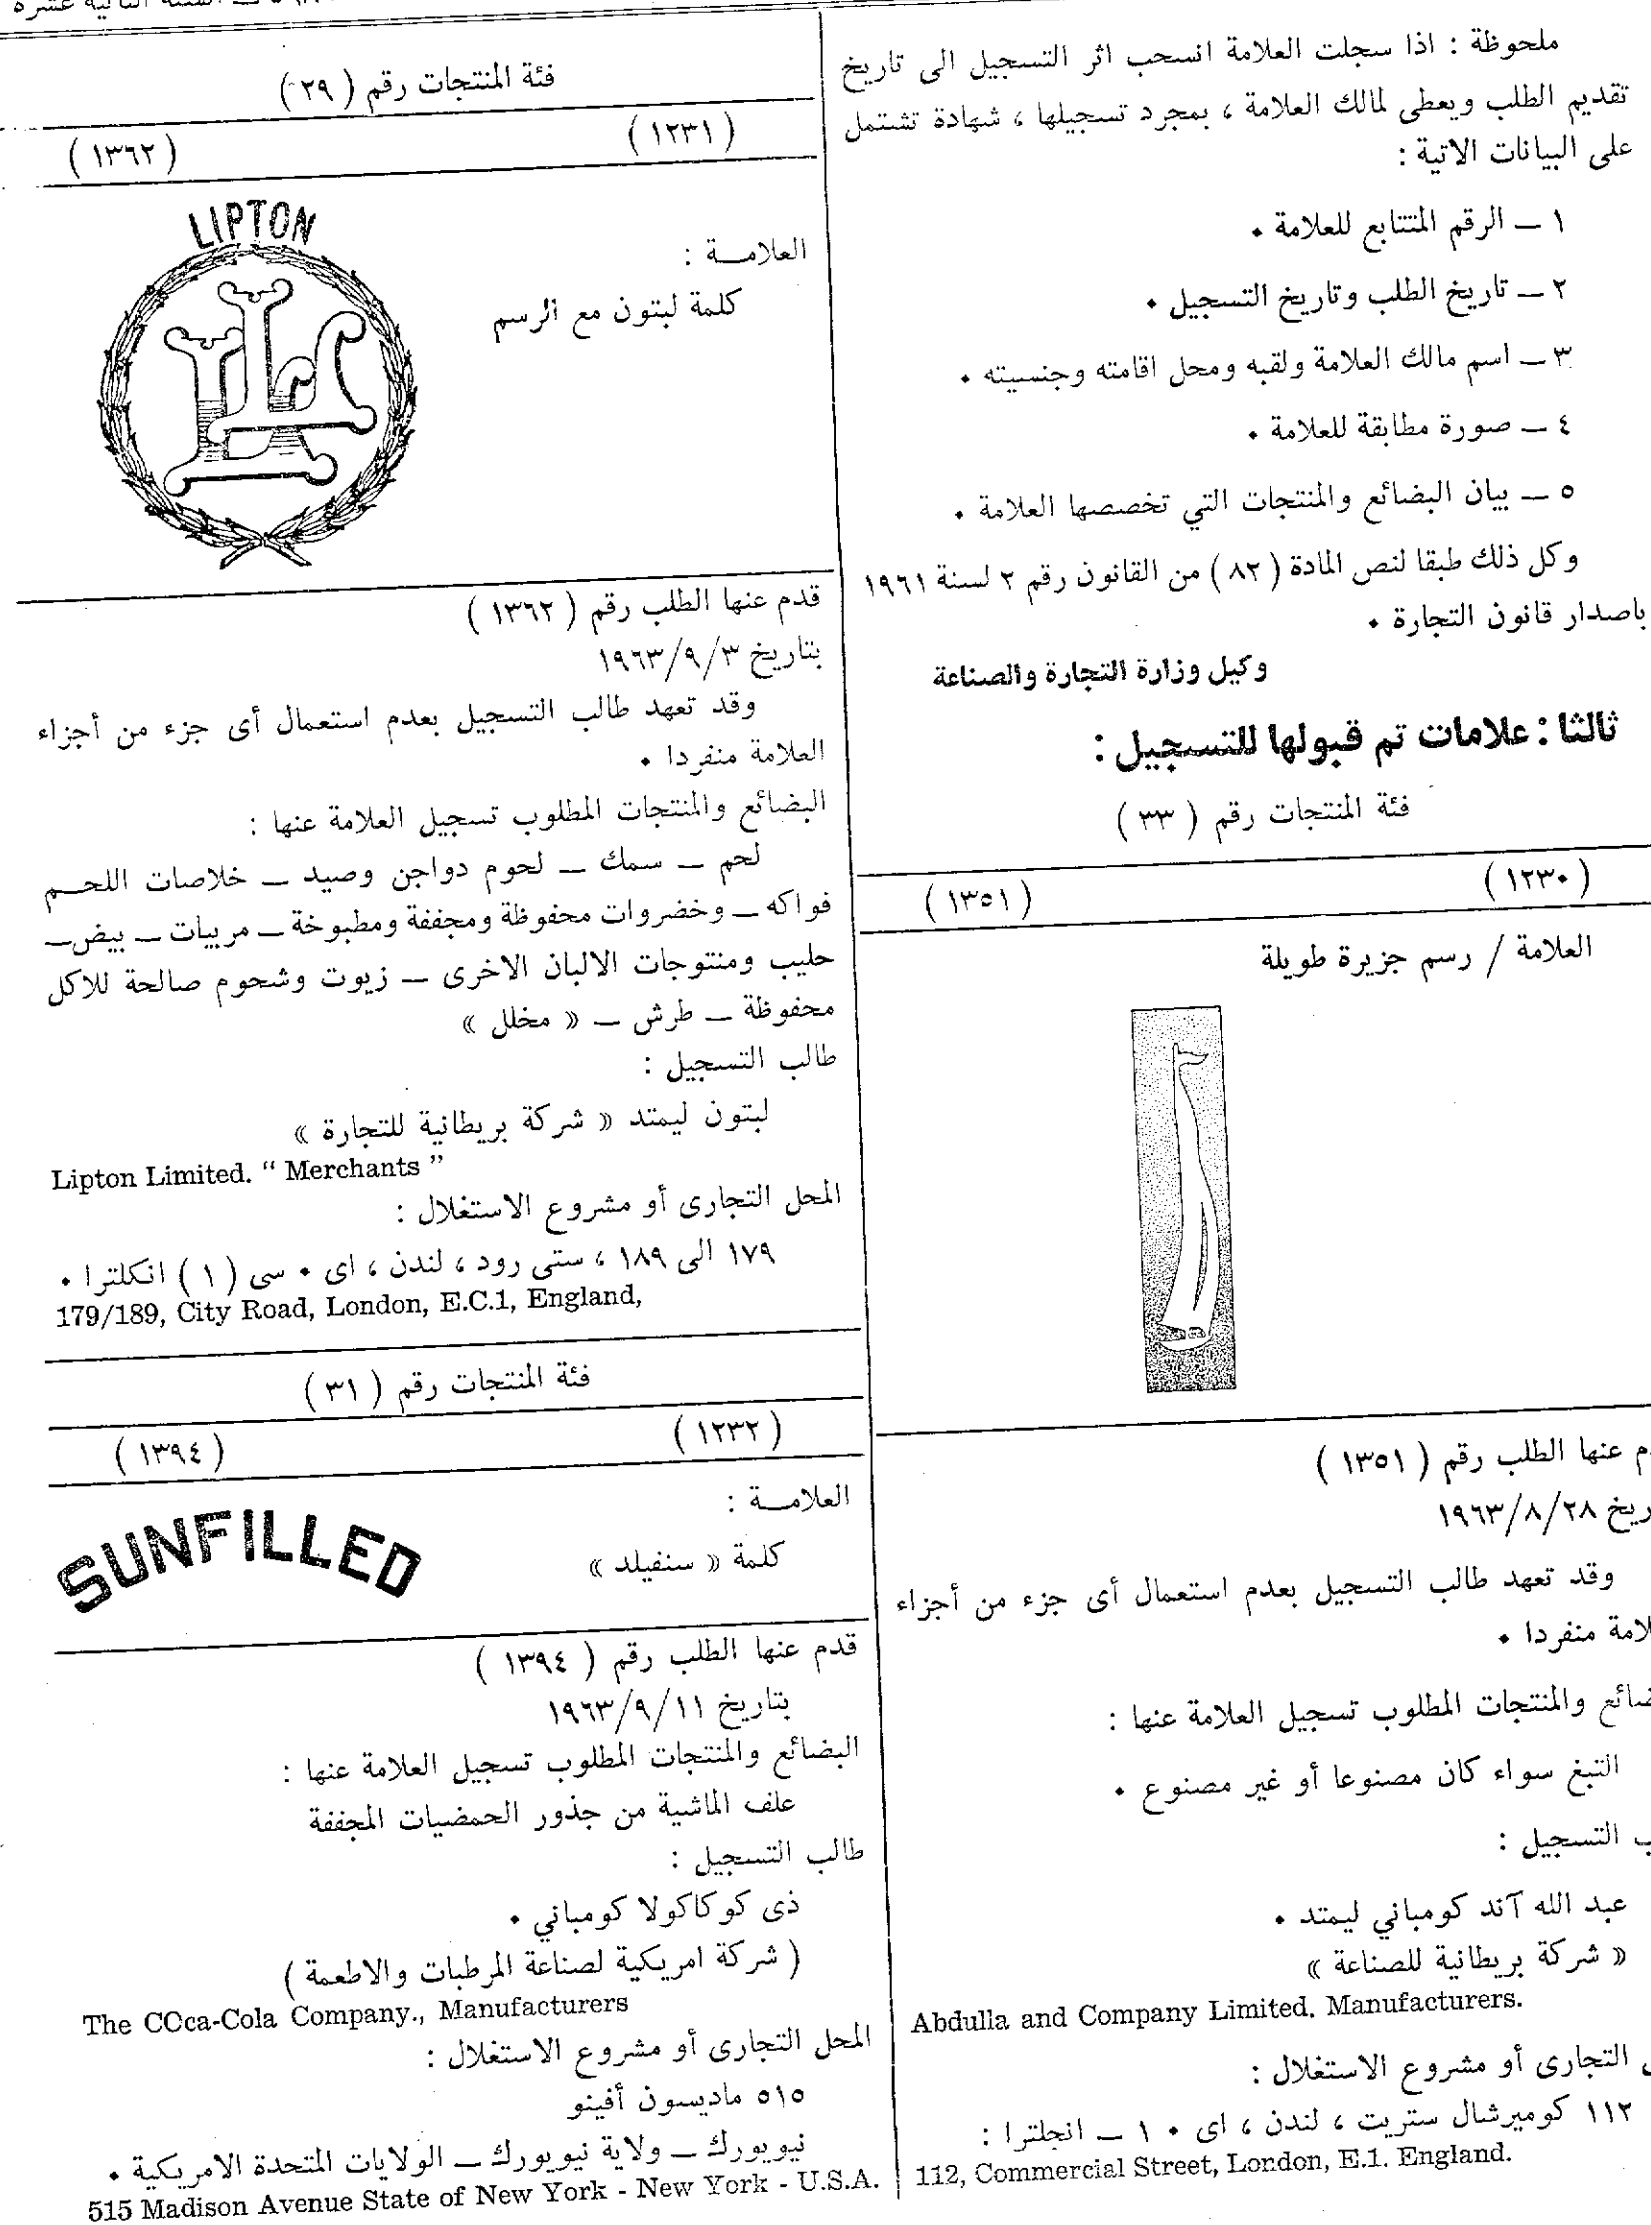 السنة الثانية عشرة
ملحوظة : اذا سجلت العلامة انسحب اثر التسجيل الى تاريخ
تقديم الطلب ويعطى لمالك العلامة ، بمجرد تسجيلها ، شهادة تشتمل
على البيانات الاتية :
١ ــ الرقم المتتابع للعلامة .
٢ ــ تاريخ الطلب وتاريخ التسجيل .
٣ ــ اسم مالك العلامة ولقبه ومحل اقامته وجنسيته .
٤ ــ صورة مطابقة للعلامة .
٥ ــ بيان البضائع والمنتجات التي تخصصها العلامة .
وكل ذلك طبقا لنص المادة ( ٨٢ ) من القانون رقم ٢ لسنة ١٩٦١
باصدار قانون التجارة .
وكيل وزارة التجارة والصناعة
ثالثا : علامات تم قبولها للتسجيل :
فئة المنتجات رقم ( ٣٣ )
( ١٢٣٠ ) ( ١٣٥١ )
العلامة / رسم جزيرة طويلة
عنها الطلب رقم ( ١٣٥١ )
١٩٦٣/٨/٢٨
وقد تعهد طالب التسجيل بعدم استعمال أى جزء من أجزاء
منفردا .
والمنتجات المطلوب تسجيل العلامة عنها :
التبغ سواء كان مصنوعا أو غير مصنوع .
التسجيل :
عبد الله آند كومباني ليمتد .
« شركة بريطانية للصناعة »
Abdulla and Company Limited. Manufacturers.
التجارى أو مشروع الاستغلال :
١١٢ كوميرشال ستريت ، لندن ، اى . ١ ــ انجلترا :
112, Commercial Street, London, E.1. England.
فئة المنتجات رقم ( ٢٩ )
( ١٢٣١ ) ( ١٣٦٢ )
LIPTON
العلامــة :
كلمة لبتون مع الرسم
قدم عنها الطلب رقم ( ١٣٦٢ )
بتاريخ ١٩٦٣/٩/٣
وقد تعهد طالب التسجيل بعدم استعمال أى جزء من أجزاء
العلامة منفردا .
البضائع والمنتجات المطلوب تسجيل العلامة عنها :
لحم ــ سمك ــ لحوم دواجن وصيد ــ خلاصات اللحــم
فواكه ــ وخضروات محفوظة ومجففة ومطبوخة ــ مربيات ــ بيض ــ
حليب ومنتوجات الالبان الاخرى ــ زيوت وشحوم صالحة للاكل
محفوظة ــ طرش ــ « مخلل »
طالب التسجيل :
لبتون ليمتد « شركة بريطانية للتجارة »
Lipton Limited. “ Merchants ”
المحل التجارى أو مشروع الاستغلال :
١٧٩ الى ١٨٩ ، ستى رود ، لندن ، اى . سى ( ١ ) انكلترا .
179/189, City Road, London, E.C.1, England,
فئة المنتجات رقم ( ٣١ )
( ١٢٣٢ ) ( ١٣٩٤ )
العلامــة :
SUNFILLED
كلمة « سنفيلد »
قدم عنها الطلب رقم ( ١٣٩٤ )
بتاريخ ١٩٦٣/٩/١١
البضائع والمنتجات المطلوب تسجيل العلامة عنها :
علف الماشية من جذور الحمضيات المجففة
طالب التسجيل :
ذى كوكاكولا كومباني .
( شركة امريكية لصناعة المرطبات والاطعمة )
The COca-Cola Company., Manufacturers
المحل التجارى أو مشروع الاستغلال :
٥١٥ ماديسون أفينو
نيويورك ــ ولاية نيويورك ــ الولايات المتحدة الامريكية .
515 Madison Avenue State of New York - New York - U.S.A.